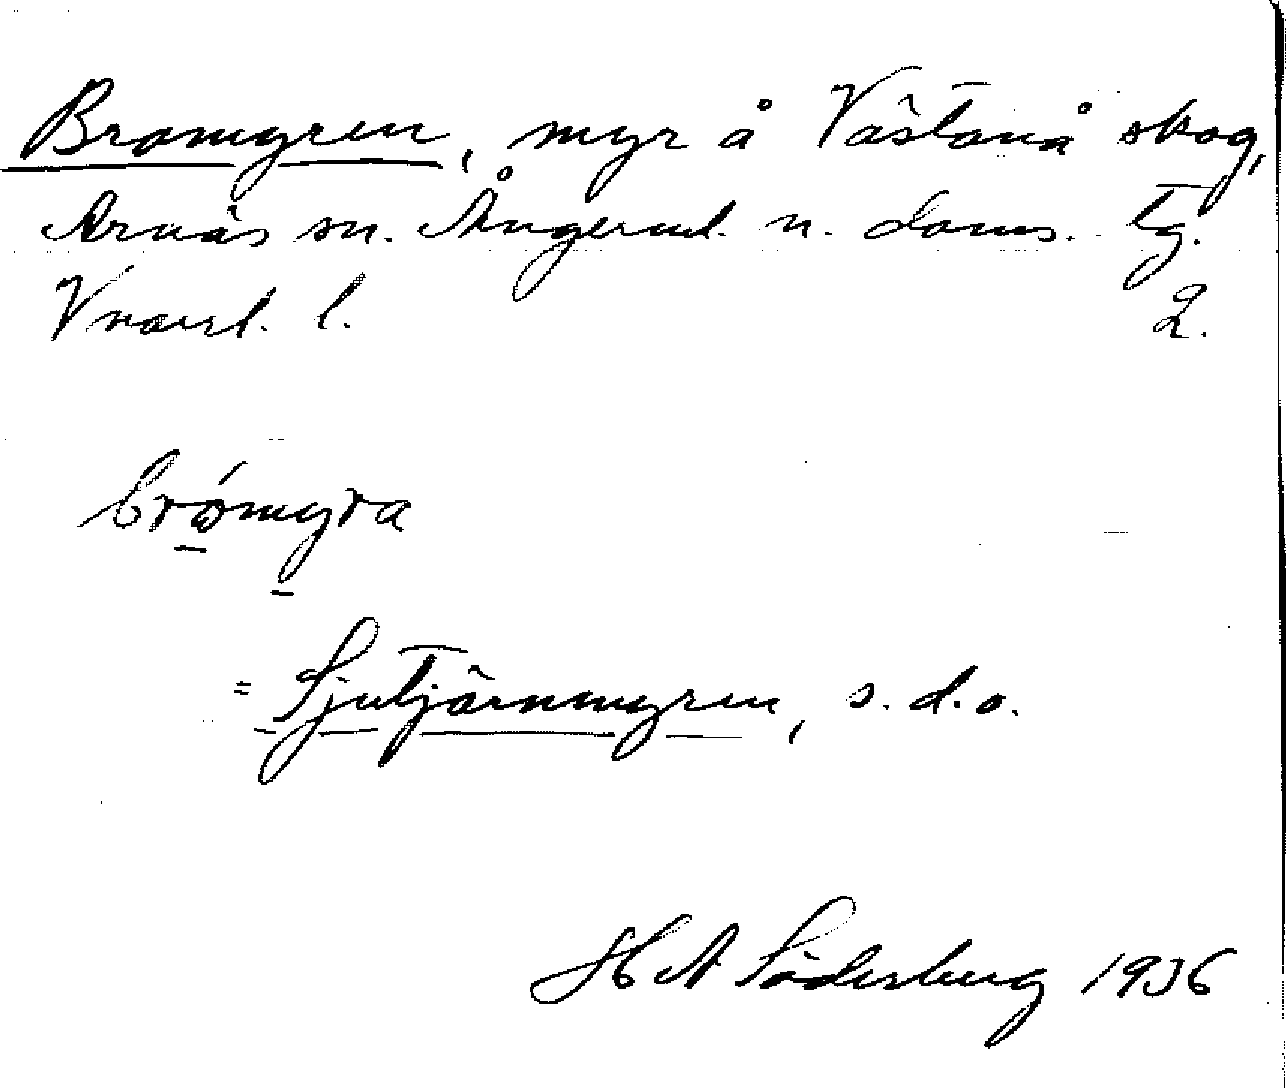 Bromyren, myr å Västanå skog,
Arnäs sn. Ångerml. n. doms. tg.
Vnorrl. l. 2.
brómyra
= Sjutjärnmyren, s. d. o.
H A Söderberg 1936